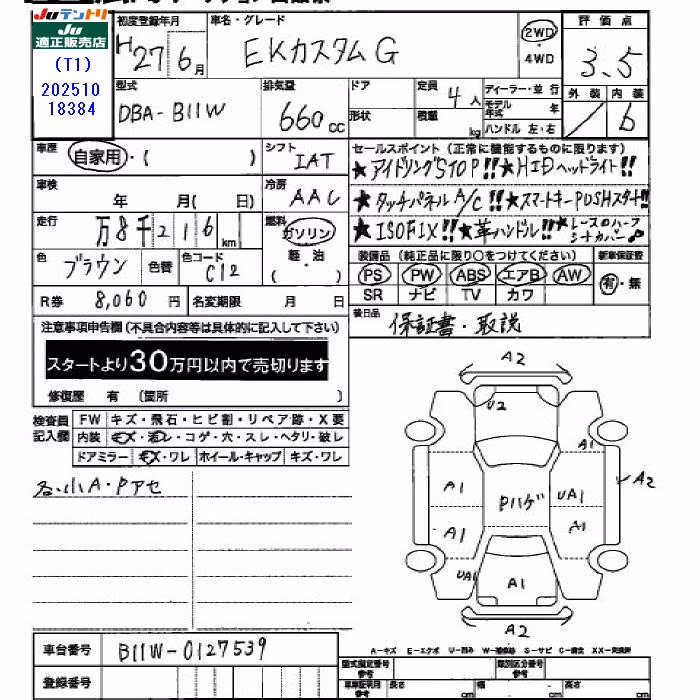 Juテントリ
Ju
適正販売店
(T1)
202510
18384
初度登録年月
H27年 6月
車名・グレード
EKカスタムG
2WD
・4WD
評価点
3.5
外装 内装
/ b
型式
DBA-B11W
排気量
660cc
ドア
形状
定員
4人
積載 kg
ディーラー・並行
モデル年式 年
ハンドル 左・右
車歴
自家用・( )
シフト
IAT
セールスポイント(正常に機能するものに限ります)
★アイドリングSTOP!!★HIDヘッドライト!!
★タッチパネルA/C!!★スマートキーPUSHスタート!!
★ISOFIX!!★革ハンドル!!★レースのハーフシートカバー♪
車検
年 月( 日)
冷房
AAC
走行
万8千216km
燃料
ガソリン
・軽・油
( )
色
ブラウン
色替
色コード
C12
装備品(純正品に限り○をつけてください)
PS PW ABS エアB AW
SR ナビ TV カワ
新車保証書
有・無
R券 8,060円
名変期限 月 日
後日品
保証書・取説
注意事項申告欄(不具合内容等は具体的に記入して下さい)
スタートより30万円以内で売切ります
修復歴 有 (箇所 )
検査員記入欄
FW キズ・飛石・ヒビ割・リペア跡・X要
内装 キズ・汚レ・コゲ・穴・スレ・ヘタリ・破レ
ドアミラー キズ・ワレ ホイール・キャップ キズ・ワレ
名・小A・Pアセ
A2
U2
A1
A1
Pハゲ
UA1
A2
A1
A1
UA1
A1
A2
車台番号 B11W-0127539
登録番号
A-キズ E-エクボ U-凹み W-補修跡 S-サビ C-腐食 XX-交換済
型式指定番号
参考
類別区分番号
参考
車庫証明用
参考
長さ cm
幅 cm
高さ cm